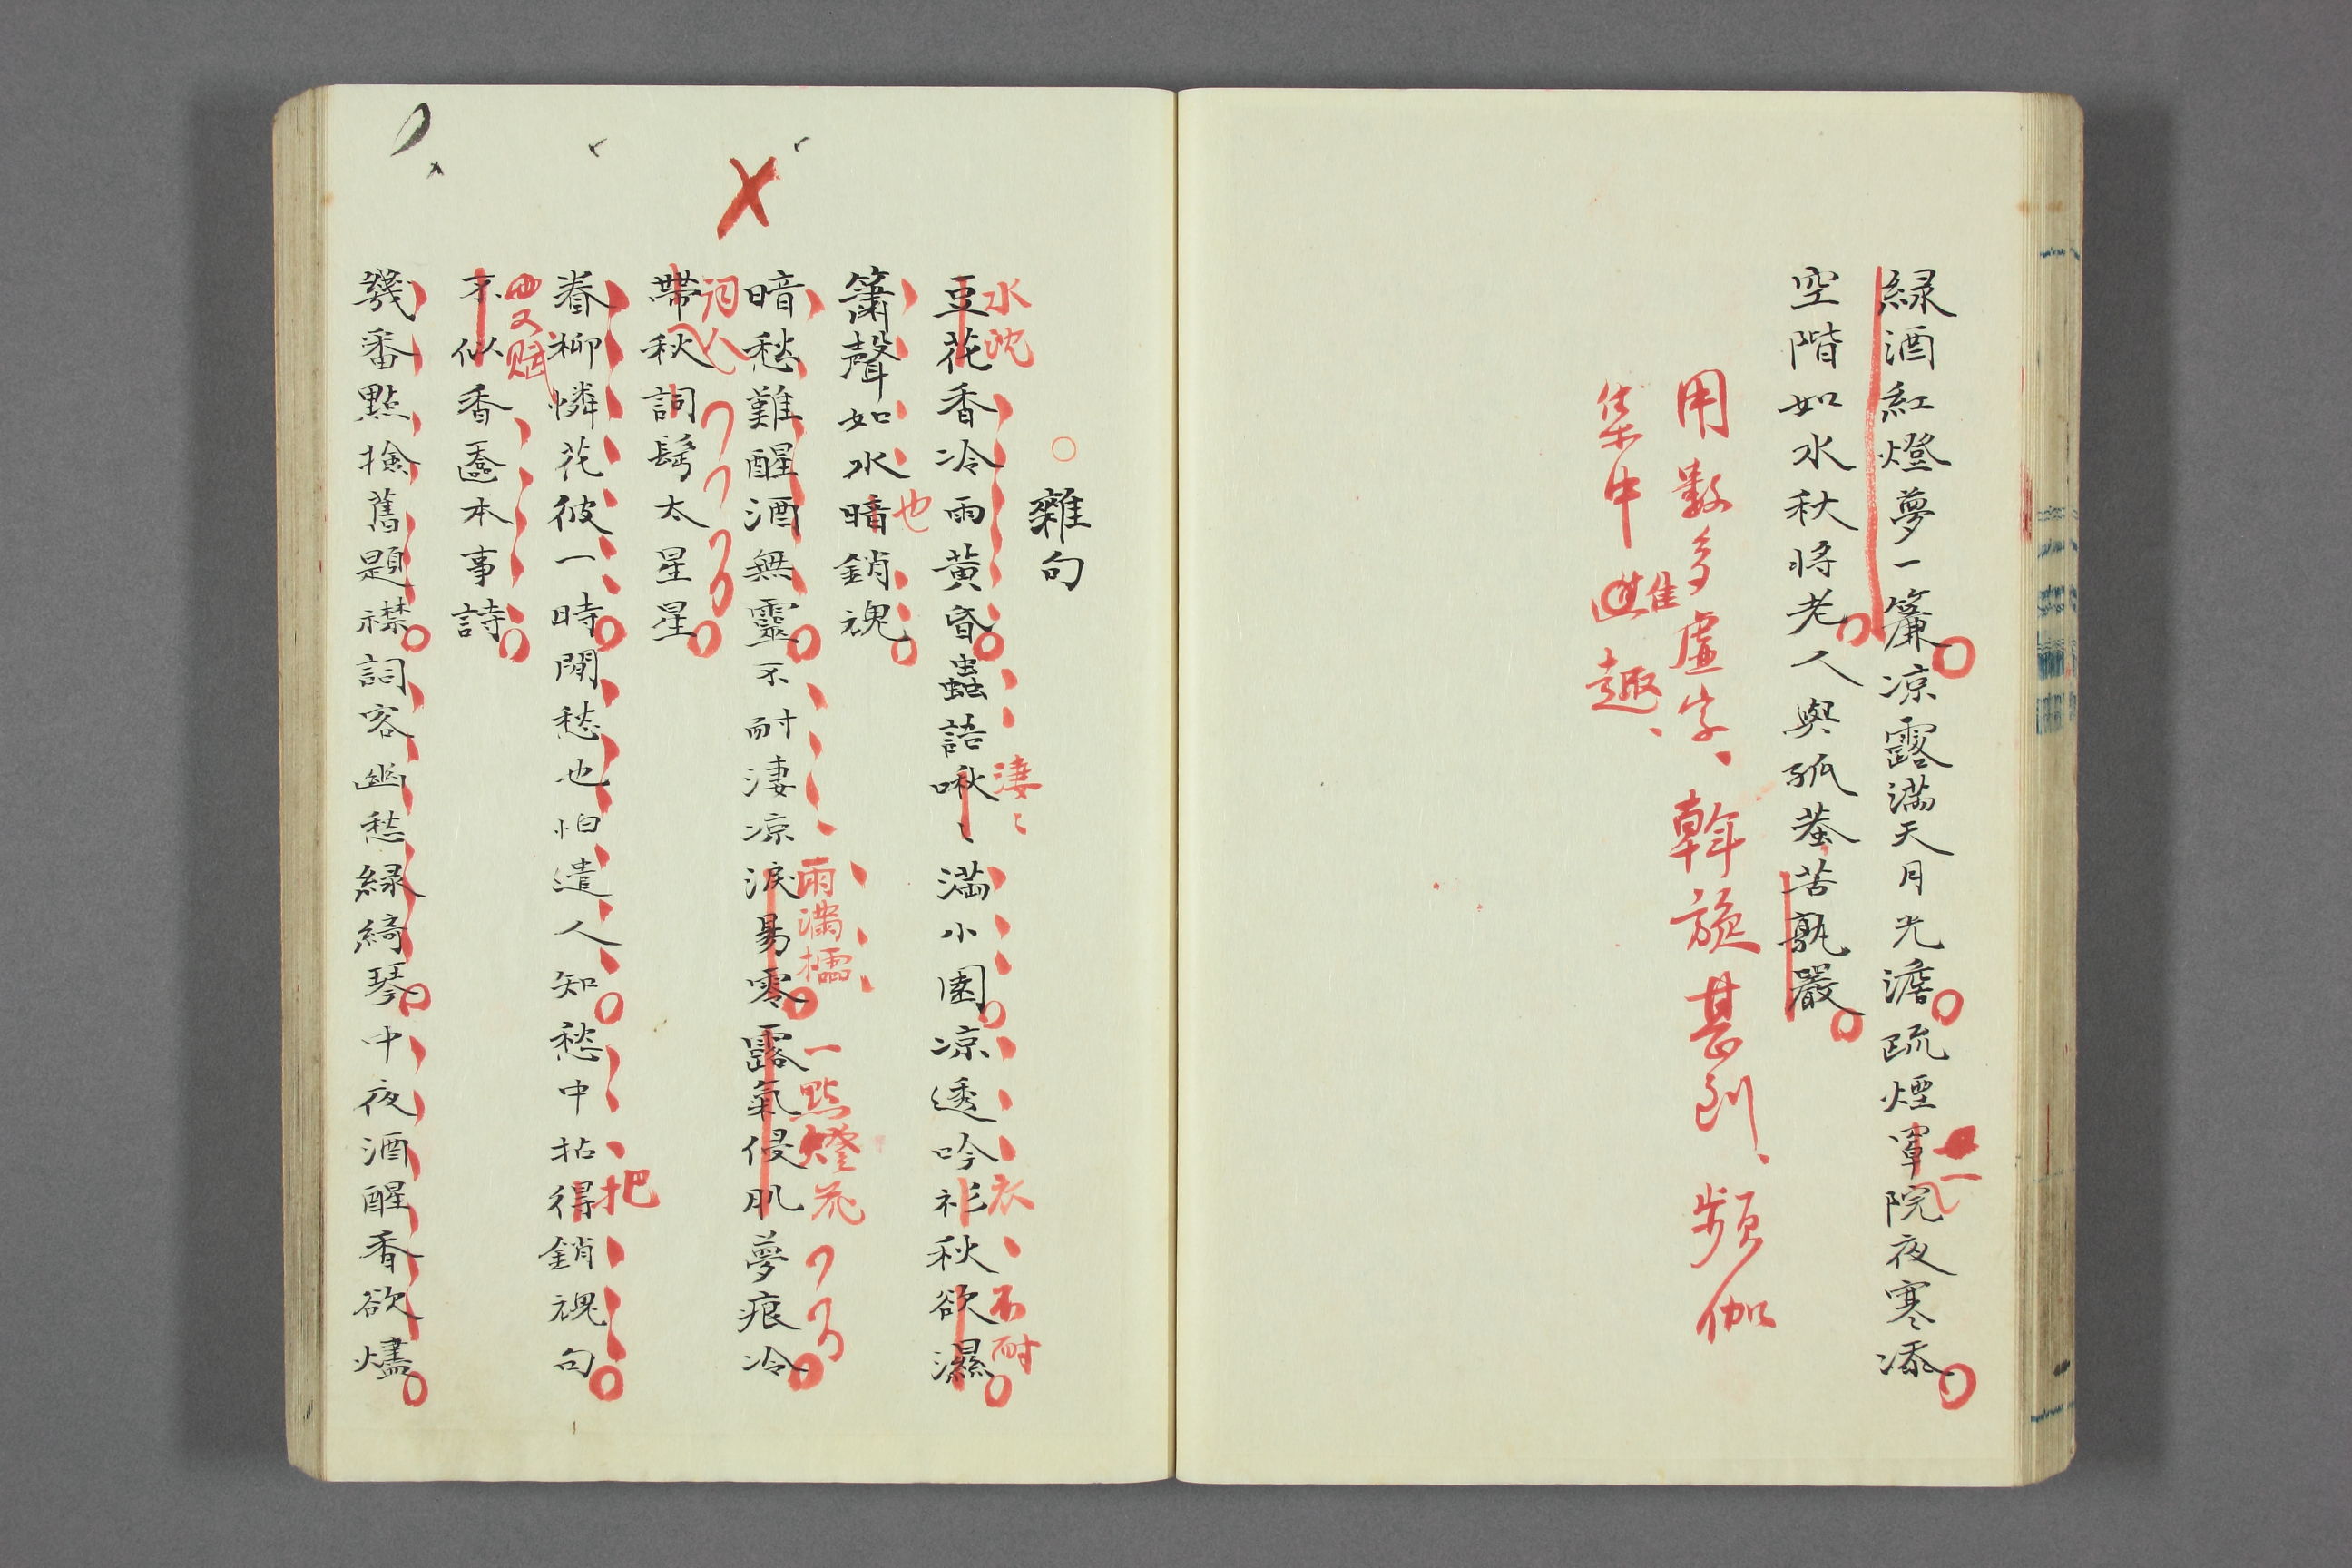 緑酒紅燈夢一簾凉露滿天月光澹疏煙罩院夜寒添
空階如水秋將老人與孤蛬苦孰嚴
用數多虛字、斡旋甚到、頻伽
集中
雖
趣、
雜句
水沈
豆花香冷雨黃昏蟲語啾〻滿小園凉透吟衫秋欲濕
淒〻
衣
不耐
簫聲如水暗銷魂
也
暗愁難醒酒無靈不耐淒凉淚易零露氣侵肌夢痕冷
雨滿櫺
一點燈花
詞人
帶秋詞髩太星星
眷柳憐花彼一時閒愁也怕遣人知愁中拈得銷魂句
把
又賦
不似香奩本事詩
幾番點檢舊題襟詞客幽愁緑綺琴中夜酒醒香欲燼